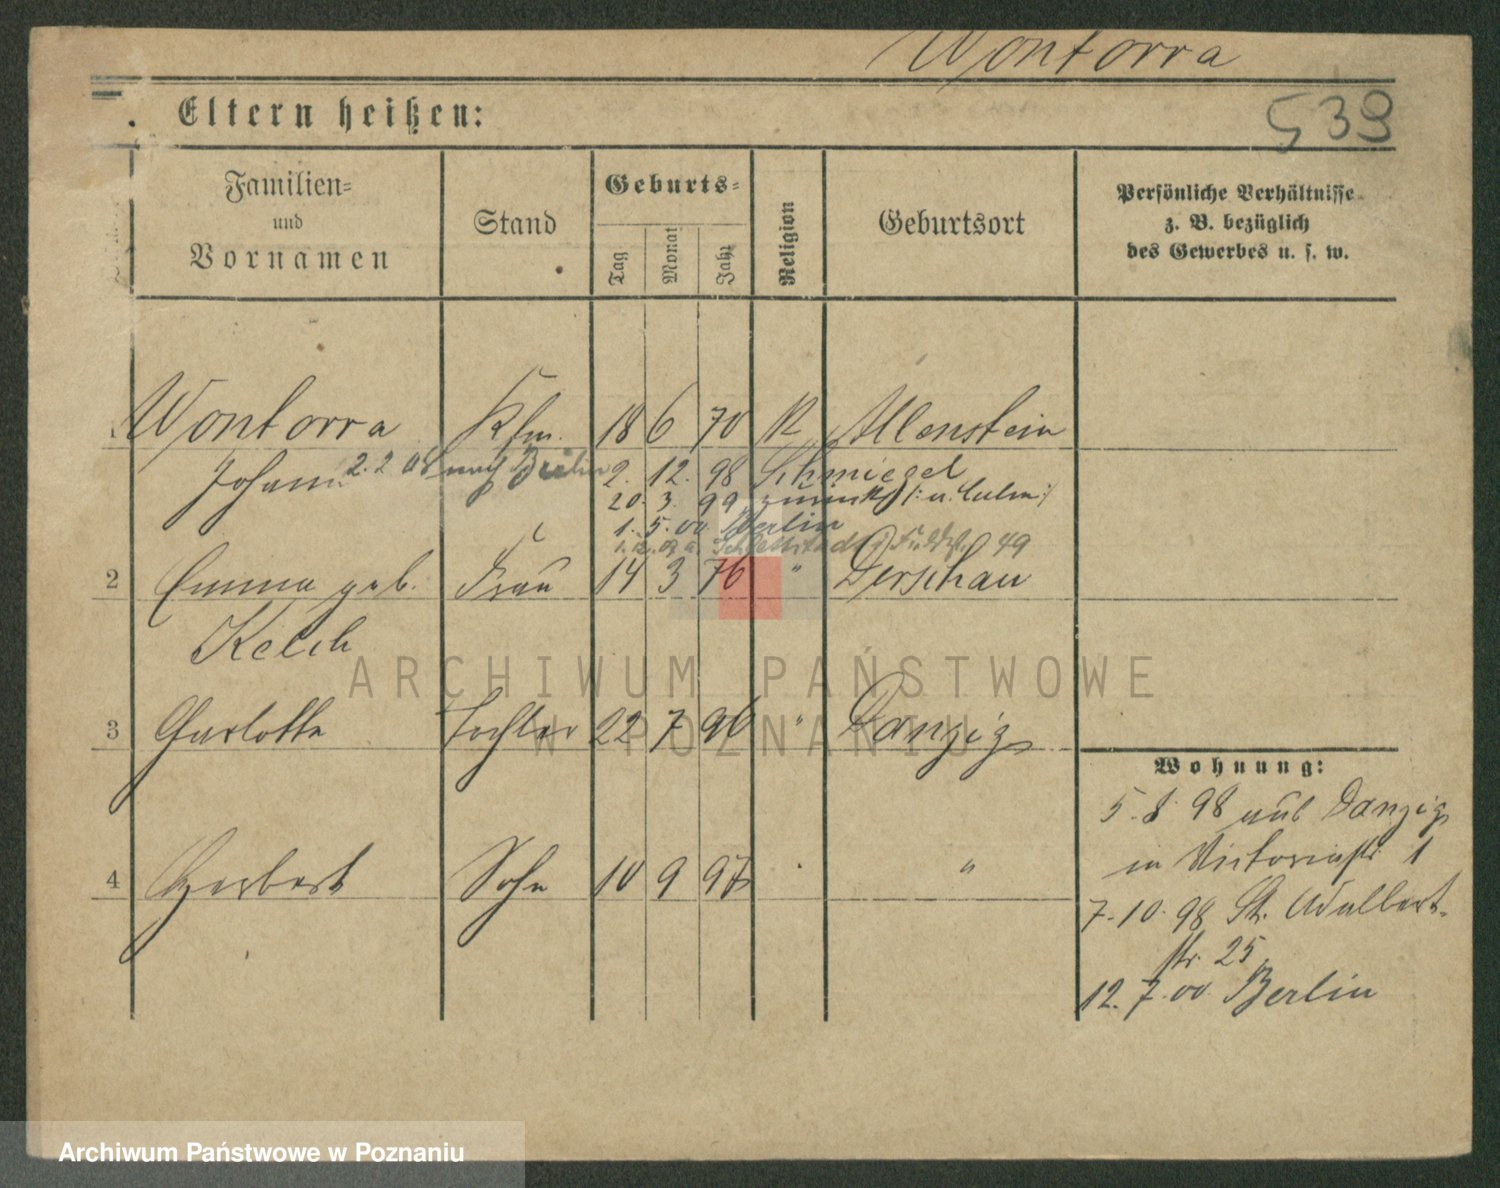 Wontorra
Eltern heißen:
539
Familien=
und
Vornamen
Stand
Geburts=
Tag
Monat
Jahr
Religion
Geburtsort
Persönliche Verhältnisse
z. B. bezüglich
des Gewerbes u. s. w.
1 Wontorra Kfm. 18 6 70 K Allenstein
Johann 2.2 08 nach Berlin 2. 12. 98 Schmiegel
20. 3. 99 zurück /: u. Culm :/
1. 5. 00 Berlin
49
2 Emma geb. Frau 14 3 76 " Derschau
Kelch
3 Charlotte Tochter 22 7 96 " Danzig
4 Herbert Sohn 10 9 97 "
Wohnung:
5. 8. 98 aus Danzig
in Victoriastr 1
7. 10. 98 St. Adalbert-
str. 25
12. 7. 00. Berlin
ARCHIWUM PAŃSTWOWE
W POZNANIU
Archiwum Państwowe w Poznaniu